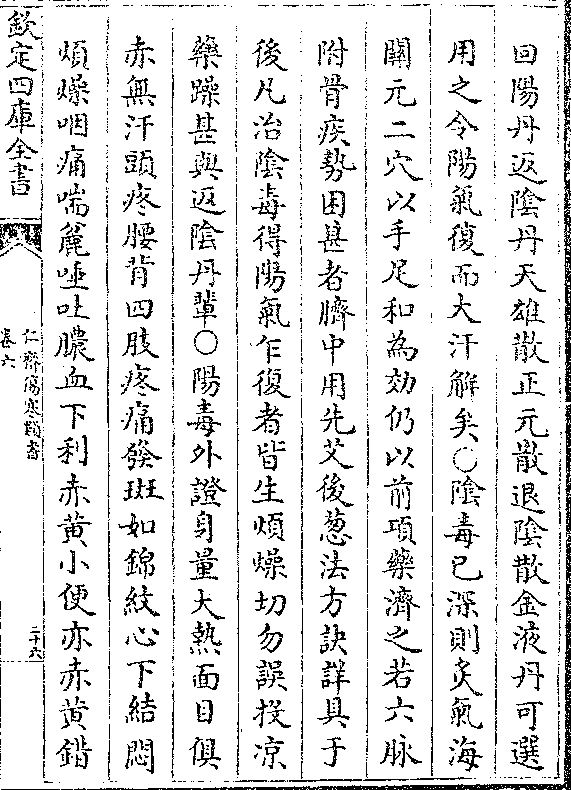 回陽丹返陰丹天雄散正元散退陰散金液丹可選
用之令陽氣復而大汗解矣○陰毒已深則灸氣海
關元二穴以手足和為効仍以前項藥濟之若六脈
附骨疾勢困甚者臍中用先艾後葱法方訣詳具于
後凡治陰毒得陽氣乍復者皆生煩燥切勿誤投凉
藥躁甚與返陰丹輩○陽毒外證身量大熱面目俱
赤無汗頭疼腰背四肢疼痛發斑如錦紋心下結悶
煩燥咽痛喘麄唖吐膿血下利赤黄小便亦赤黄錯
欽定四庫全書
仁齋傷寒類書
卷六
二十六